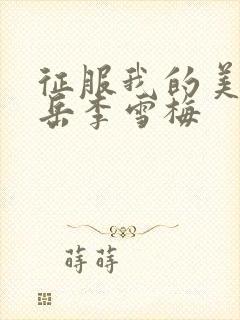 征服我的美
岳李雪梅
莳莳